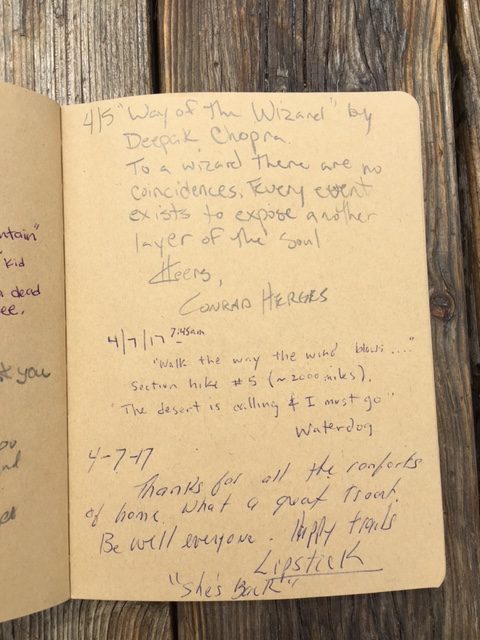 ntain"
kid
dead
ee.
you
4/5 "Way of the Wizard" by
Deepak Chopra.
To a wizard there are no
coincidences. Every event
exists to expose another
layer of the soul
Cheers,
CONRAD HERGES
4/7/17 7:45am
"Walk the way the wind blows...."
Section hike #5 (~2000 miles).
"The desert is calling & I must go"
Waterdog
4-7-17
Thanks for all the comforts
of home. What a great treat.
Be well everyone. Happy trails
Lipstick
"She's Back"